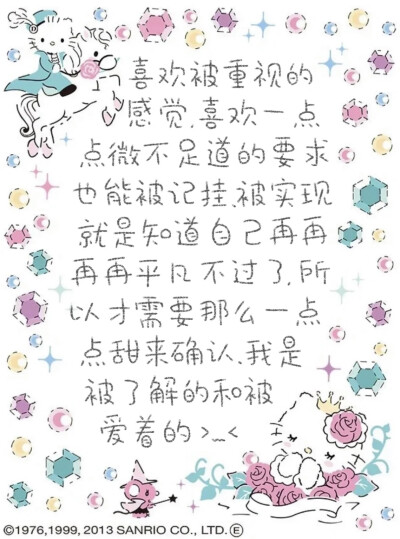 喜欢被重视的
感觉,喜欢一点
点微不足道的要求
也能被记挂、被实现
就是知道自己再再
再再平凡不过了,所
以才需要那么一点
点甜来确认、我是
被了解的和被
爱着的>﹏<
©1976,1999, 2013 SANRIO CO., LTD. Ⓔ